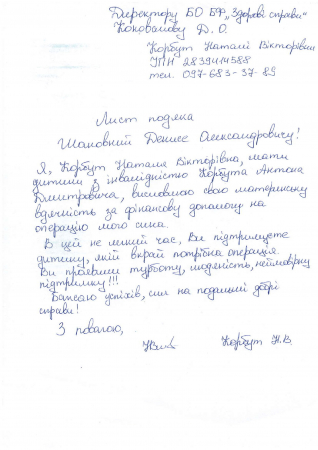 Директору БО БФ „Здорові справи"
Коновалову Д. О.
Корбут Наталії Вікторівни
ІПН 2839414588
тел. 097-683-37-89
Лист подяка
Шановний Денисе Олександровичу!
Я, Корбут Наталія Вікторівна, мати
дитини з інвалідністю Корбута Антона
Дмитровича, висловлюю свою материнську
вдячність за фінансову допомогу на
операцію мого сина.
В цей не легкий час, Ви підтримуєте
дитину, якій вкрай потрібна операція.
Ви проявили турботу, людяність, неймовірну
підтримку!!!
Бажаю успіхів, сил на подальші добрі
справи!
З повагою,
Корбут Н.В.